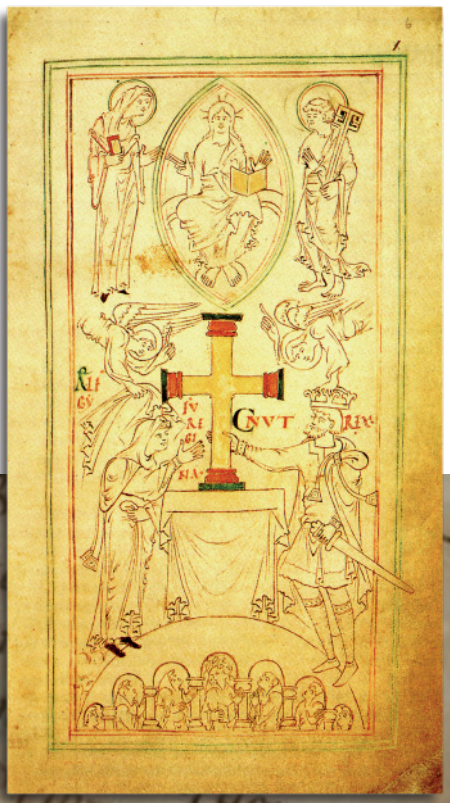 6
ÆLF
GẎ
FV
RE
GI
NA·
CNVT REX·